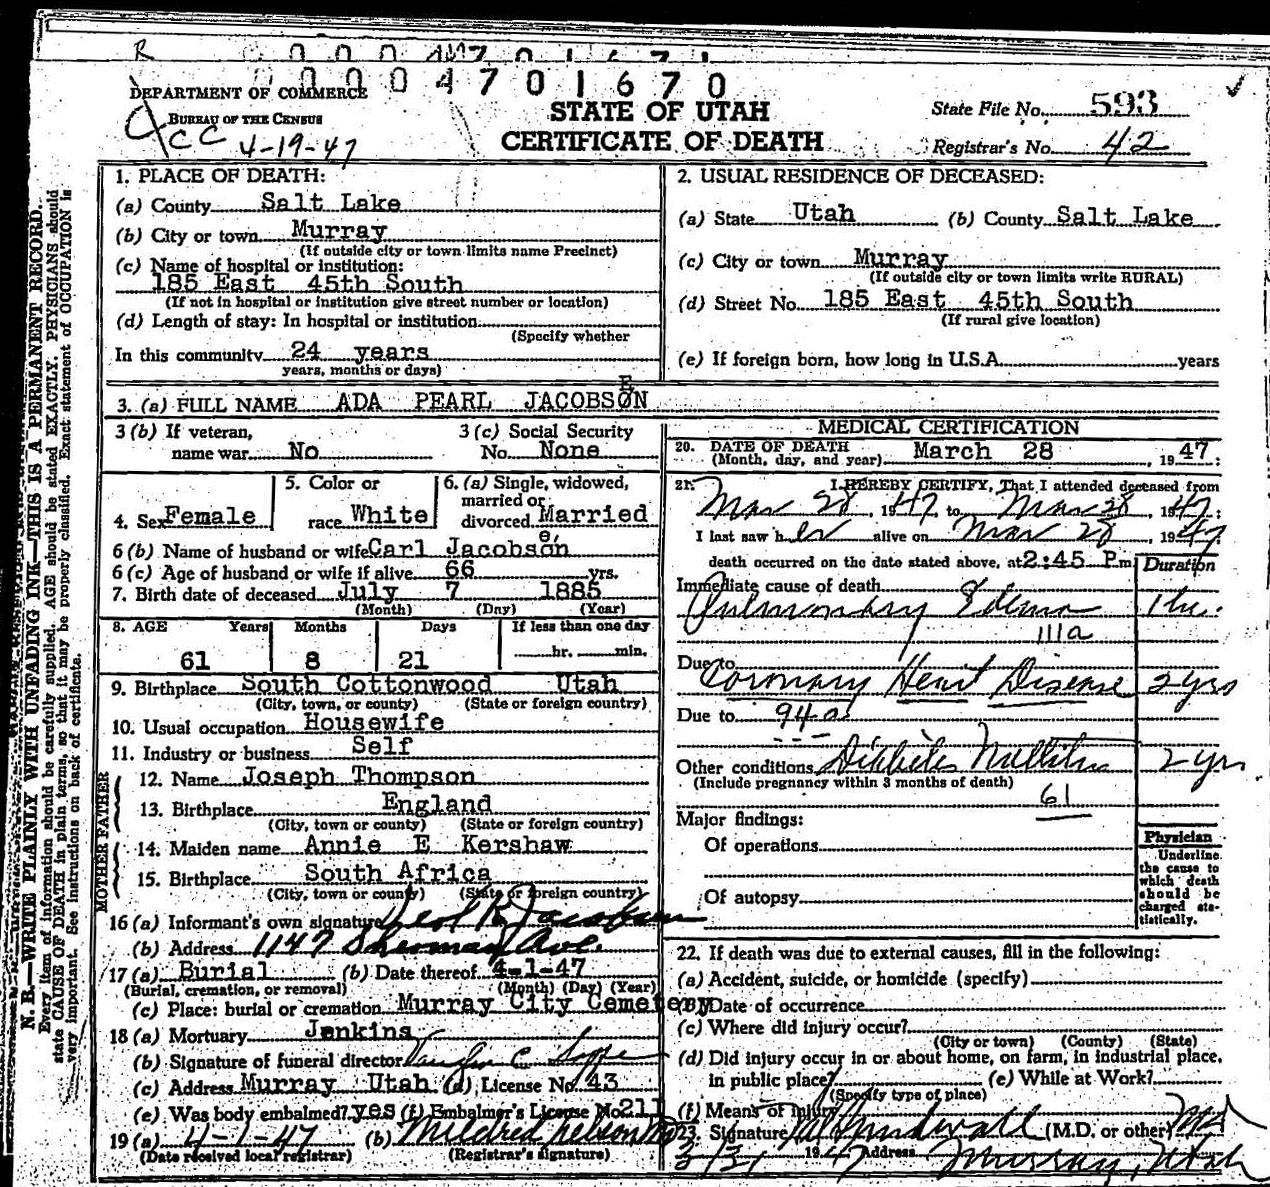 R 0 0 0 4 7 0 1 6 7 1
0 0 0 4 7 0 1 6 7 0
DEPARTMENT OF COMMERCE
BUREAU OF THE CENSUS
CC 4-19-47
STATE OF UTAH
CERTIFICATE OF DEATH
State File No. 593
Registrar's No. 42
N. B.—WRITE PLAINLY WITH UNFADING INK—THIS IS A PERMANENT RECORD.
Every item of information should be carefully supplied. AGE should be stated EXACTLY. PHYSICIANS should
state CAUSE OF DEATH in plain terms, so that it may be properly classified. Exact statement of OCCUPATION is
very important. See instructions on back of certificate.
1. PLACE OF DEATH:
(a) County Salt Lake
(b) City or town Murray
(If outside city or town limits name Precinct)
(c) Name of hospital or institution:
185 East 45th South
(If not in hospital or institution give street number or location)
(d) Length of stay: In hospital or institution
(Specify whether
In this community 24 years
years, months or days)
2. USUAL RESIDENCE OF DECEASED:
(a) State Utah (b) County Salt Lake
(c) City or town Murray
(If outside city or town limits write RURAL)
(d) Street No. 185 East 45th South
(If rural give location)
(e) If foreign born, how long in U.S.A. years
3. (a) FULL NAME ADA PEARL JACOBSEN
3 (b) If veteran, name war No
3 (c) Social Security No. None
4. Sex Female
5. Color or race White
6. (a) Single, widowed, married or divorced Married
6 (b) Name of husband or wife Carl Jacobsen
6 (c) Age of husband or wife if alive 66 yrs.
7. Birth date of deceased July 7 1885
(Month) (Day) (Year)
8. AGE Years Months Days If less than one day
61 8 21 hr. min.
9. Birthplace South Cottonwood Utah
(City, town, or county) (State or foreign country)
10. Usual occupation Housewife
11. Industry or business Self
FATHER
12. Name Joseph Thompson
13. Birthplace England
(City, town or county) (State or foreign country)
MOTHER
14. Maiden name Annie E Kershaw
15. Birthplace South Africa
(City, town or county) (State or foreign country)
16 (a) Informant's own signature Jacobsen
(b) Address 1147 Sherman Ave.
17 (a) Burial (b) Date thereof 4-1-47
(Burial, cremation, or removal) (Month) (Day) (Year)
(c) Place: burial or cremation Murray City Cemetery
18 (a) Mortuary Jenkins
(b) Signature of funeral director
(c) Address Murray Utah (d) License No. 43
(e) Was body embalmed? yes (f) Embalmer's License No. 211
19 (a) 4-1-47 (b) Mildred Nelson
(Date received local registrar) (Registrar's signature)
MEDICAL CERTIFICATION
20. DATE OF DEATH March 28, 1947
(Month, day, and year)
21. I HEREBY CERTIFY, That I attended deceased from
Mar 28, 1947, to Mar 28, 1947;
I last saw her alive on Mar 28, 1947
death occurred on the date stated above, at 2:45 P.m. Duration
Immediate cause of death
Pulmonary Edema 1 hr.
111a
Due to
Coronary Heart Disease 2 yrs
Due to 94a
Other conditions Diabetes Mellitus 2 yrs
(Include pregnancy within 3 months of death)
61
Major findings:
Of operations
Of autopsy
Physician
Underline
the cause to
which death
should be
charged sta-
tistically.
22. If death was due to external causes, fill in the following:
(a) Accident, suicide, or homicide (specify)
(b) Date of occurrence
(c) Where did injury occur?
(City or town) (County) (State)
(d) Did injury occur in or about home, on farm, in industrial place,
in public place? (e) While at Work?
(Specify type of place)
(f) Means of injury
23. Signature (M.D. or other) MD
3/31 1947 Address Murray, Utah